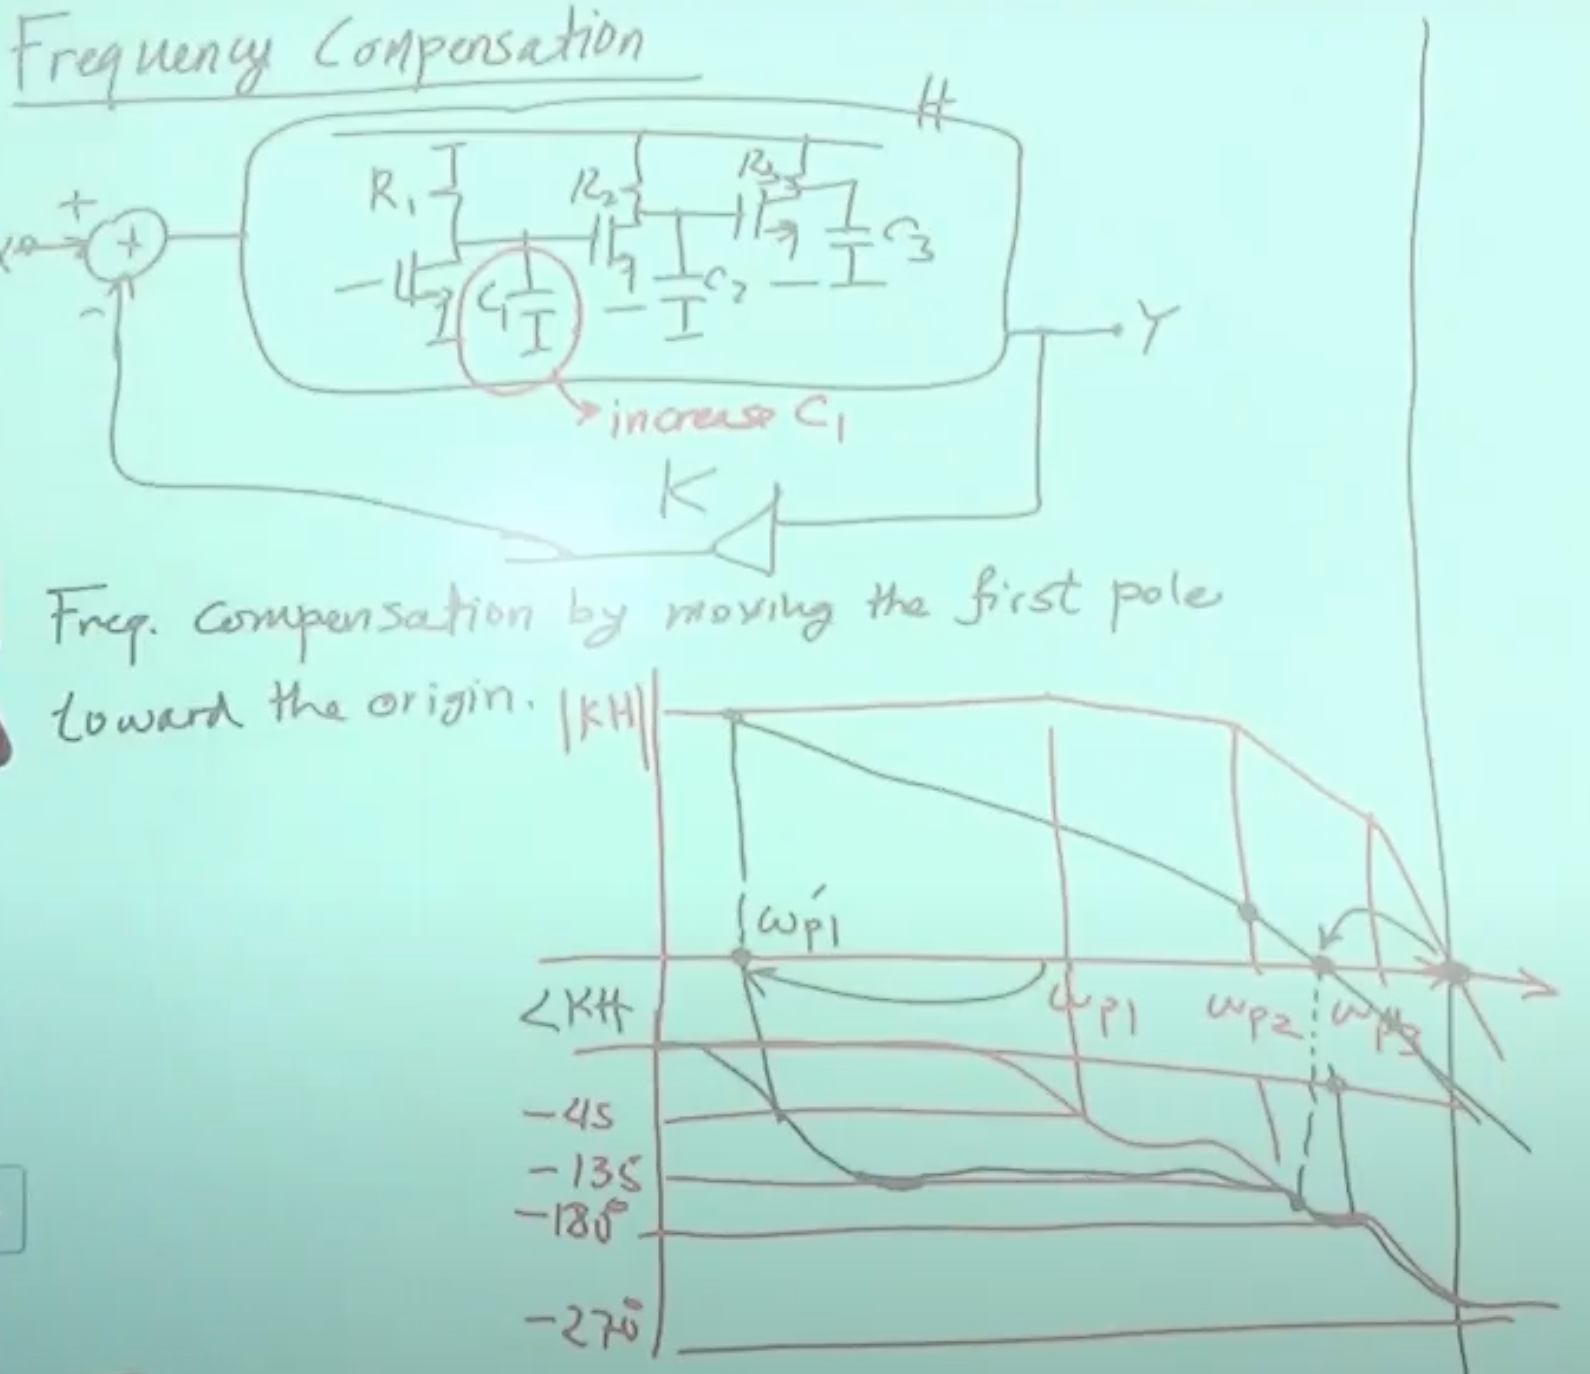 Frequency Compensation
H
R1
R2
R3
C1
C2
C3
+
+
-
Y
increase C1
K
Freq. compensation by moving the first pole
toward the origin.
|KH|
ω'p1
ωp1
ωp2
ωp3
<KH
-45
-135
-180°
-270°